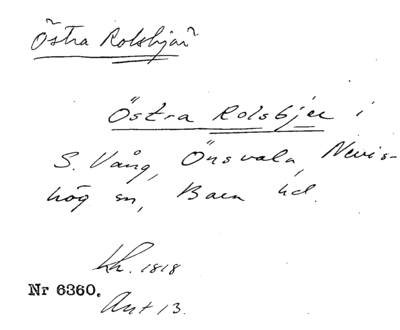 Östra Rolsbjär
Östra Rolsbjer i
S. Vång, Önsvala, Nevis-
hög sn, Bara hd.
Lh. 1818
Nr 6360.
Akt 13.